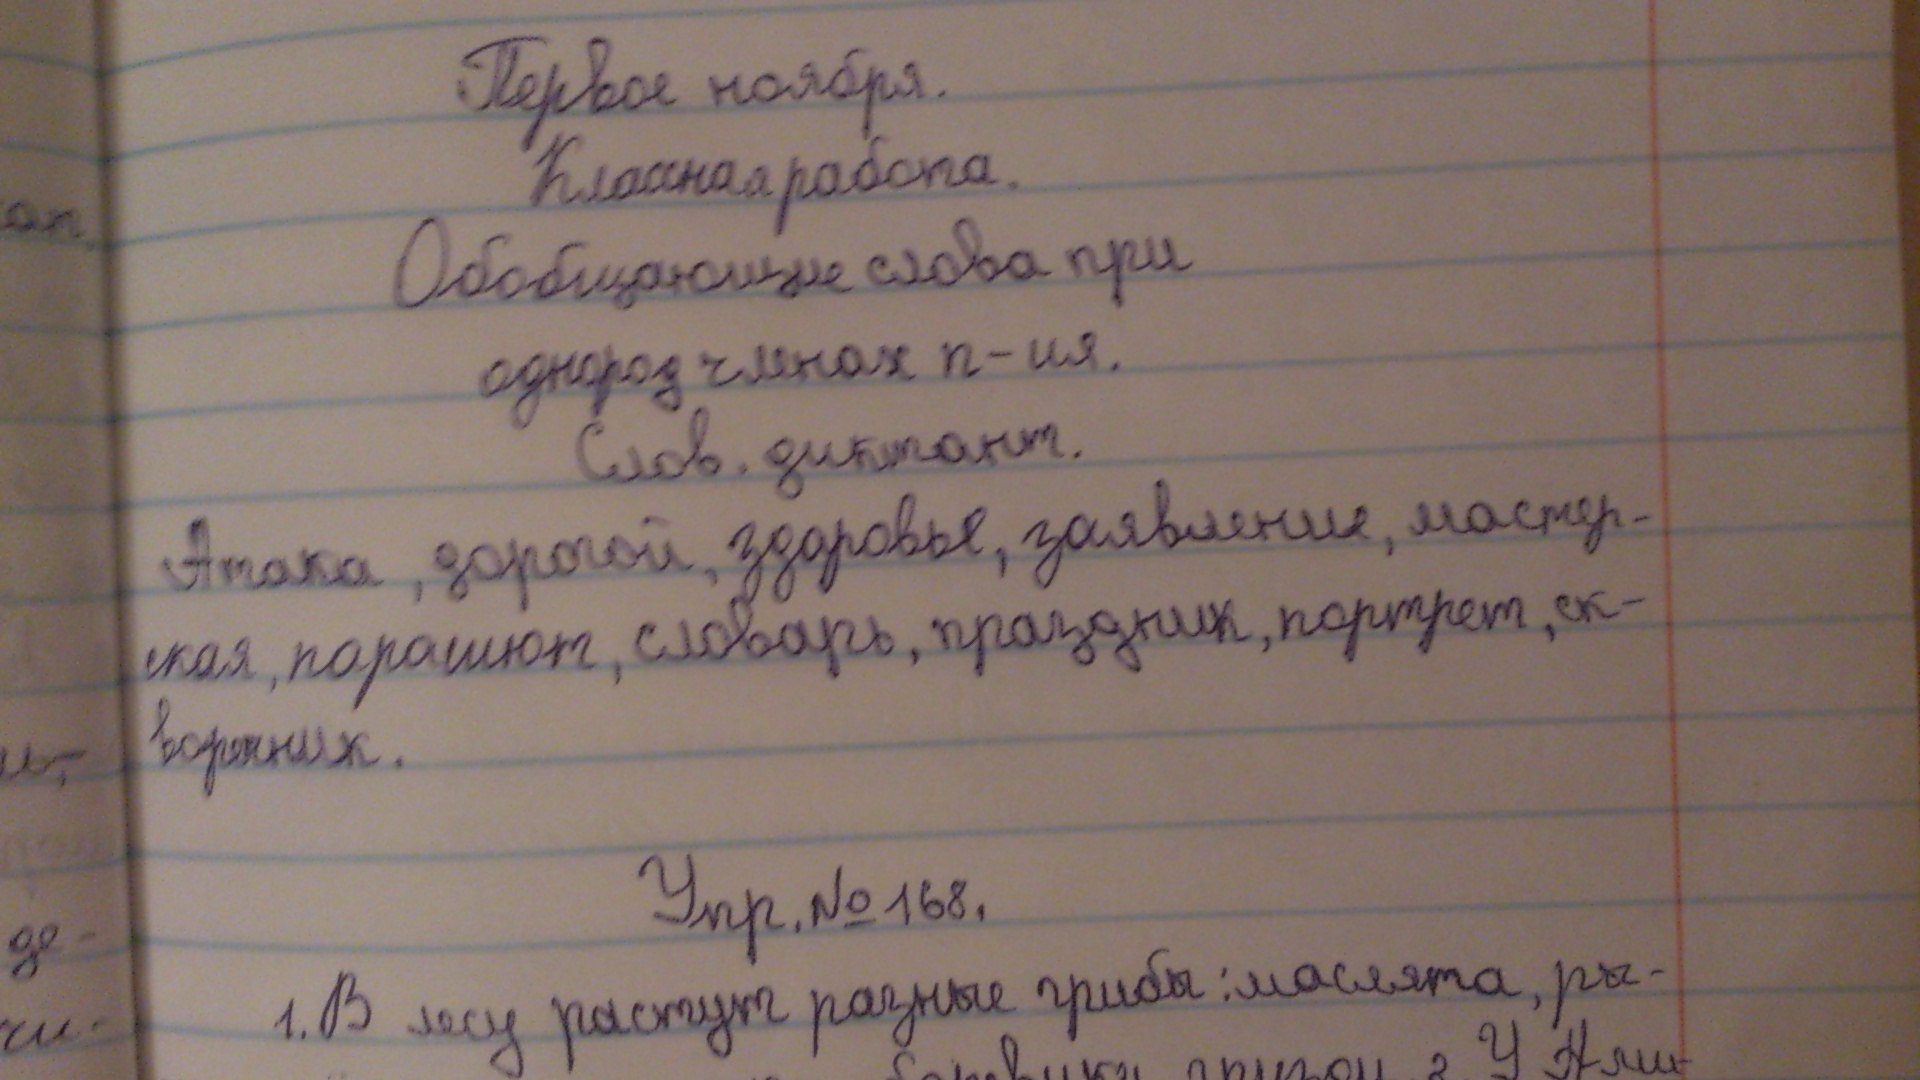 Первое ноября.
Классная работа.
Обобщающие слова при
однород членах п-ия.
Слов. диктант.
Атака, дорогой, здоровье, заявление, мастер-
ская, парашют, словарь, праздник, портрет, ск-
ворчник.
Упр. № 168.
1. В лесу растут разные грибы: маслята, ры-
боровики, грузди. 2. У
де-